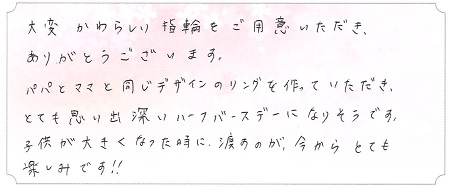 大変かわらしい指輪をご用意いただき、
ありがとうございます。
パパとママと同じデザインのリングを作っていただき、
とても思い出深いハーフバースデーになりそうです。
子供が大きくなった時に、渡すのが、今からとても
楽しみです!!